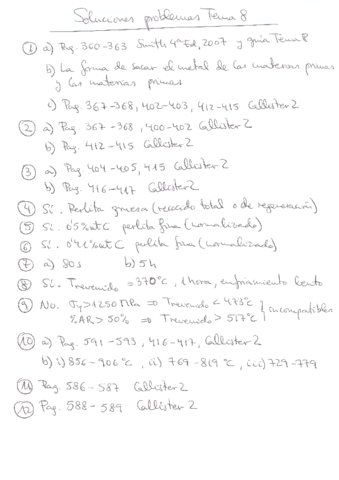 Soluciones problemas Tema 8
① a) Pag. 360-363 Smith 4ª Ed, 2007 y guía Tema 8
b) La forma de sacar el metal de las materias primas
y las materias primas
c) Pag. 367-368, 402-403, 412-415 Callister 2
② a) Pag. 367-368, 400-402 Callister 2
b) Pag. 412-415 Callister 2
③ a) Pag 404-405, 415 Callister 2
b) Pag. 416-417 Callister 2
④ Sí. Perlita gruesa (recocido total o de regeneración)
⑤ Sí. 0'5%wt C perlita fina (normalizado)
⑥ Sí 0'41%wt C perlita fina (normalizado)
⑦ a) 80s b) 5h
⑧ Sí. Trevenido = 370°C, 1 hora, enfriamiento lento
⑨ No. σy > 1250 MPa ⇒ Trevenido < 473°C } incompatibles
%AR > 50% ⇒ Trevenido > 517°C
⑩ a) Pag. 591-593, 416-417, Callister 2
b) i) 856-906°C, ii) 769-819°C, iii) 729-779
⑪ Pag. 586-587 Callister 2
⑫ Pag. 588-589 Callister 2